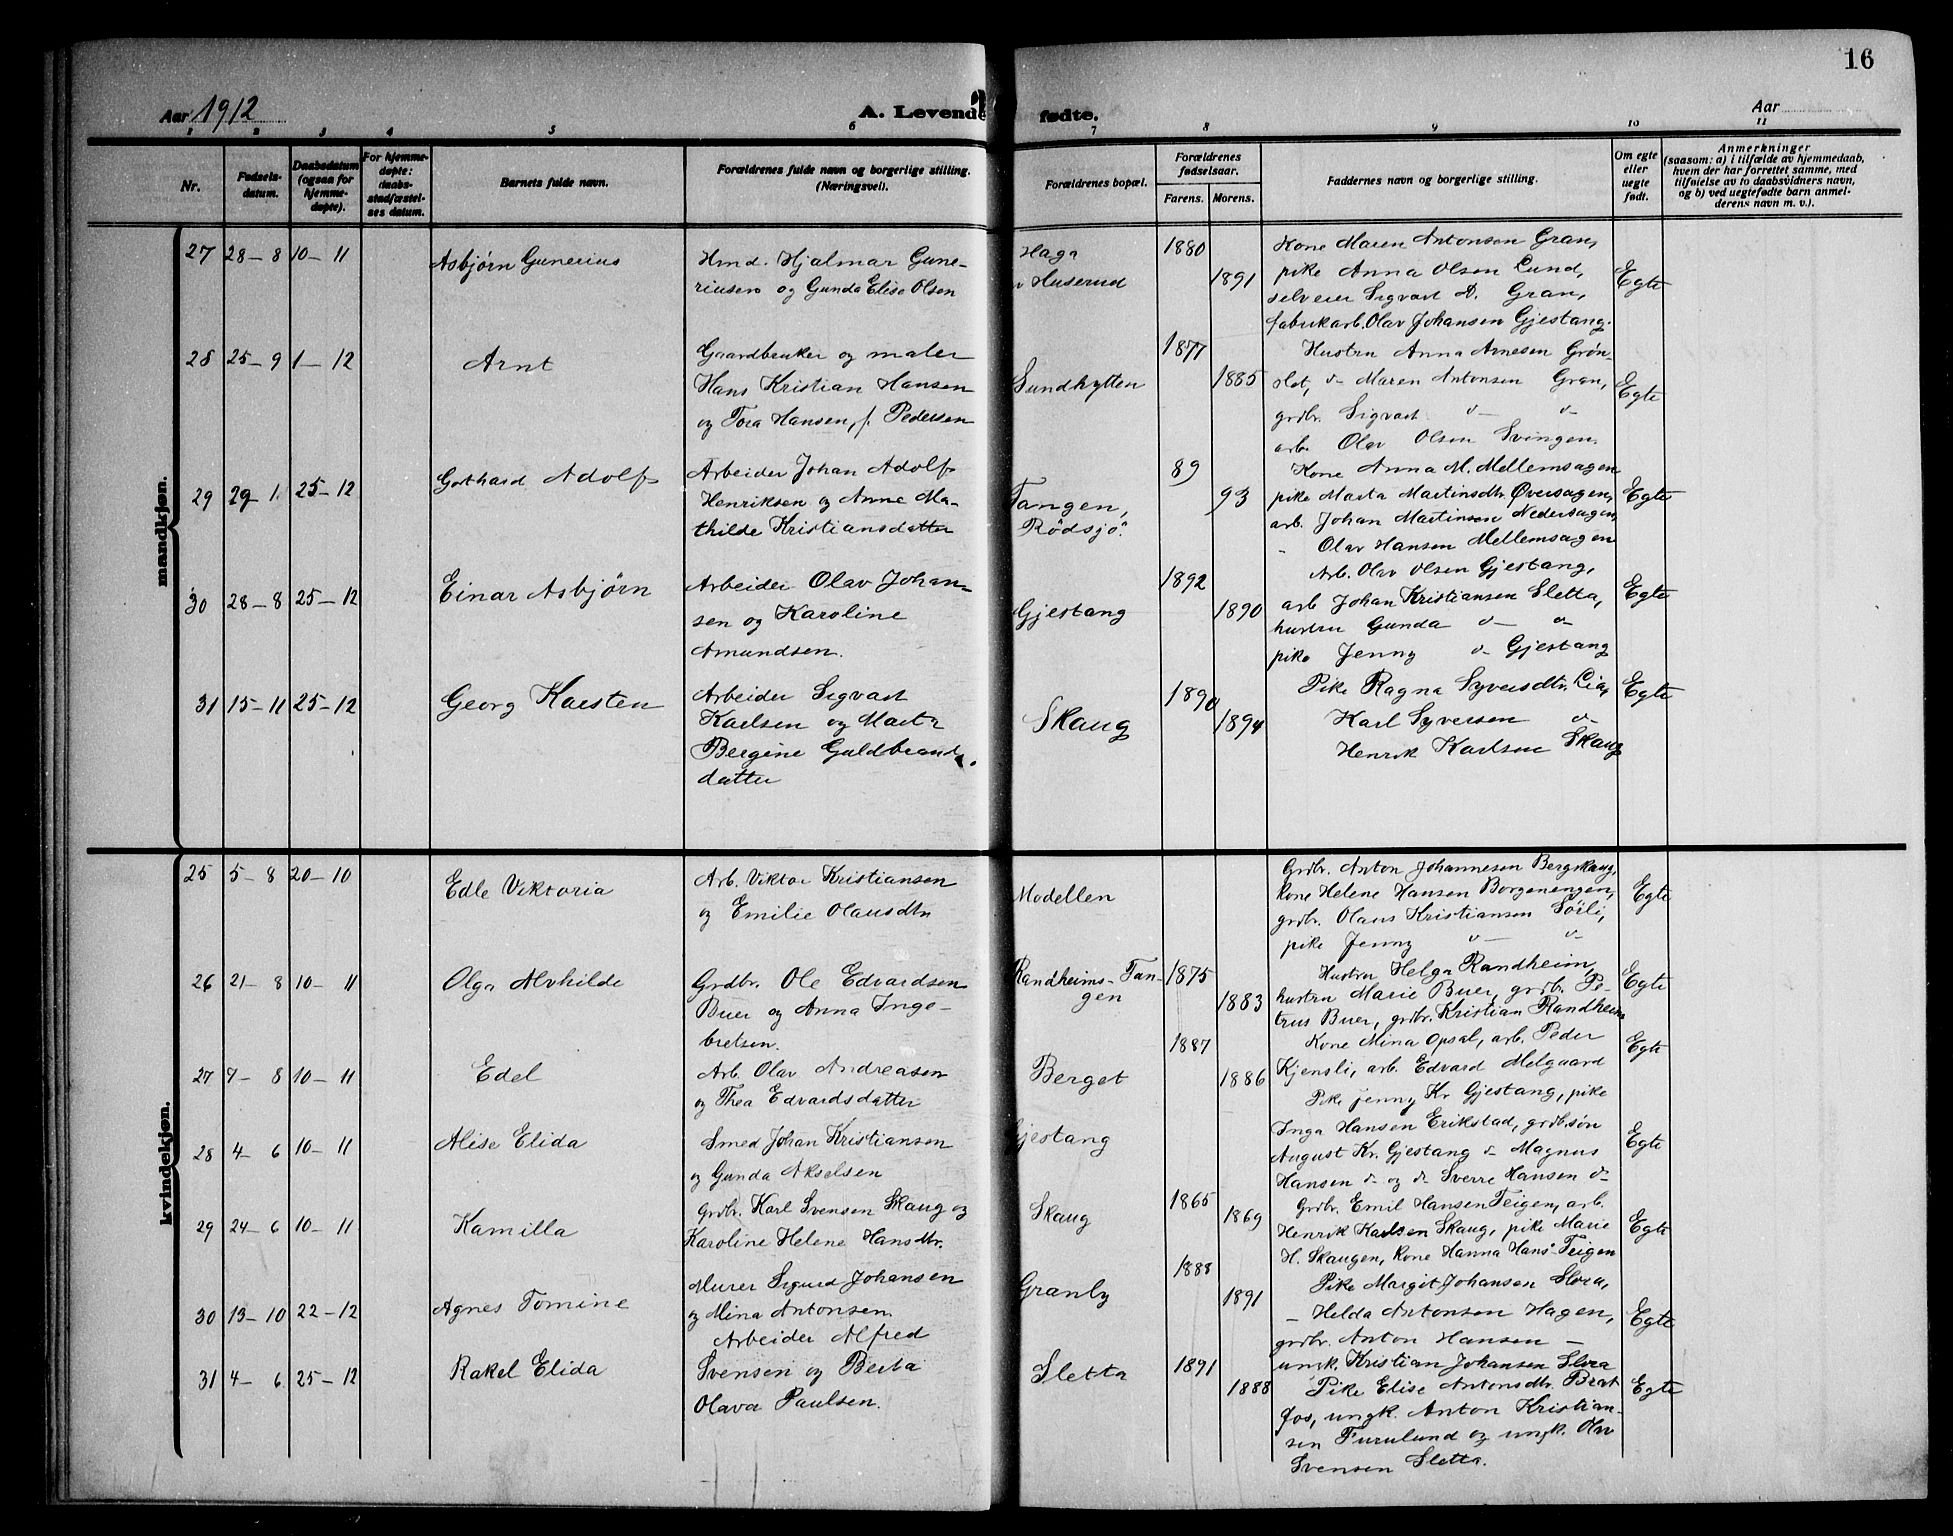 16
Aar 1912
A. Levende fødte.
Aar
1 2 3 4 5 6 7 8 9 10 11
Nr.
Fødsels-
datum.
Daabsdatum
(ogsaa for
hjemme-
døpte).
For hjemme-
døpte:
daabs-
stadfæstel-
ses datum.
Barnets fulde navn.
Forældrenes fulde navn og borgerlige stilling.
(Næringsvei).
Forældrenes bopæl.
Forældrenes
fødselsaar.
Farens. Morens.
Faddernes navn og borgerlige stilling.
Om egte
eller
uegte
født.
Anmerkninger
(saasom: a) i tilfælde av hjemmedaab,
hvem der har forrettet samme, med
tilføielse av to daabsvidners navn,
og b) ved uegtefødte barn anmel-
derens navn m. v.).
mandkjøn.
27 28–8 10–11
Asbjørn Gunerius
Hmd. Hjalmar Gune-
riusen og Gunda Elise Olsen
Haga
v Huserud
1880
1891
Kone Maren Antonsen Gran,
pike Anna Olsen Lund,
selveier Sigvart A. Gran,
fabrikarb. Olav Johansen Gjestang.
Egte
28 25–9 1–12
Arnt
Gaardbruker og maler
Hans Kristian Hansen
og Tora Hansen, f. Pedersen
Sundhytten
1877
1885
Hustru Anna Arnesen Grøn
slet, d– Maren Antonsen Gran,
grdbr. Sigvart d– d–
arb. Olav Olsen Svingen.
Egte
29 29–1. 25–12
Gothard Adolf
Arbeider Johan Adolf
Henriksen og Anne Ma-
thilde Kristiansdatter
Tangen,
Rödsjö.
89
93
Kone Anna M. Mellemsagen
pike Marta Martinsdtr. Øversagen,
arb. Johan Martinsen Nedersagen,
– Olav Hansen Mellemsagen
Egte
30 28–8 25–12
Einar Asbjørn
Arbeider Olav Johan-
sen og Karoline
Amundsen.
Gjestang
1892
1890
Arb. Olav Olsen Gjestang,
arb Johan Kristiansen Sletta,
hustru Gunda d– d–
pike Jenny d– Gjestang
Egte
31 15–11 25–12
Georg Karsten
Arbeider Sigvart
Karlsen og Marta
Bergine Guldbrands
datter
Skaug
1890
1894
Pike Ragna Syversdtr. Lia,
Karl Syversen d–
Henrik Karlsen Skaug
Egte
kvindekjøn.
25 5–8 20–10
Edle Viktoria
Arb. Viktor Kristiansen
og Emilie Olausdtr
Modellen
Grdbr. Anton Johannesen Bergskaug,
kone Helene Hansen Borgenengen,
grdbr. Olaus Kristiansen Söili,
pike Jenny d– d–
Egte
26 21–8 10–11
Olga Alvhilde
Grdbr. Ole Edvardsen
Buer og Anna Inge-
bretsen.
Randheims-Tan-
gen
1875
1883
Hustru Helga Randheim,
hustru Marie Buer, grdbr. Pe-
trus Buer, grdbr. Kristian Randheim
Egte
27 7–8 10–11
Edel
Arb. Olav Andreasen
og Thea Edvardsdatter
Berget
1887
1886
Kone Mina Opsal, arb. Peder
Kjensli, arb. Edvard Melgaard
Egte
28 4–6 10–11
Alise Elida
Smed Johan Kristiansen
og Gunda Akselsen
Gjestang
Pike Jenny Kr Gjestang, pike
Inga Hansen Erikstad, grdb.søn
August Kr. Gjestang d– Magnus
Hansen d– og d– Sverre Hansen d–
Egte
29 24–6 10–11
Kamilla
Grdbr. Karl Svensen Skaug og
Karoline Helene Hansdtr.
Skaug
1865
1869
Grdbr. Emil Hansen Teigen, arb.
Henrik Karlsen Skaug, pike Marie
H. Skaugen, kone Hanna Hans Teigen
Egte
30 13–10 22–12
Agnes Tomine
Murer Sigurd Johansen
og Mina Antonsen
Granly
1888
1891
Pike Margit Johansen Slora,
– Helda Antonsen Hagen,
grdbr. Anton Hansen –
ungk. Kristian Johansen Slora
Egte
31 4–6 25–12
Rakel Elida
Arbeider Alfred
Svensen og Berta
Olava Paulsen.
Sletta
1891
1888
Pike Elise Antonsdtr. Brat
fos, ungk. Anton Kristian-
sen Furulund og ungk. Olav
Svensen Sletta.
Egte